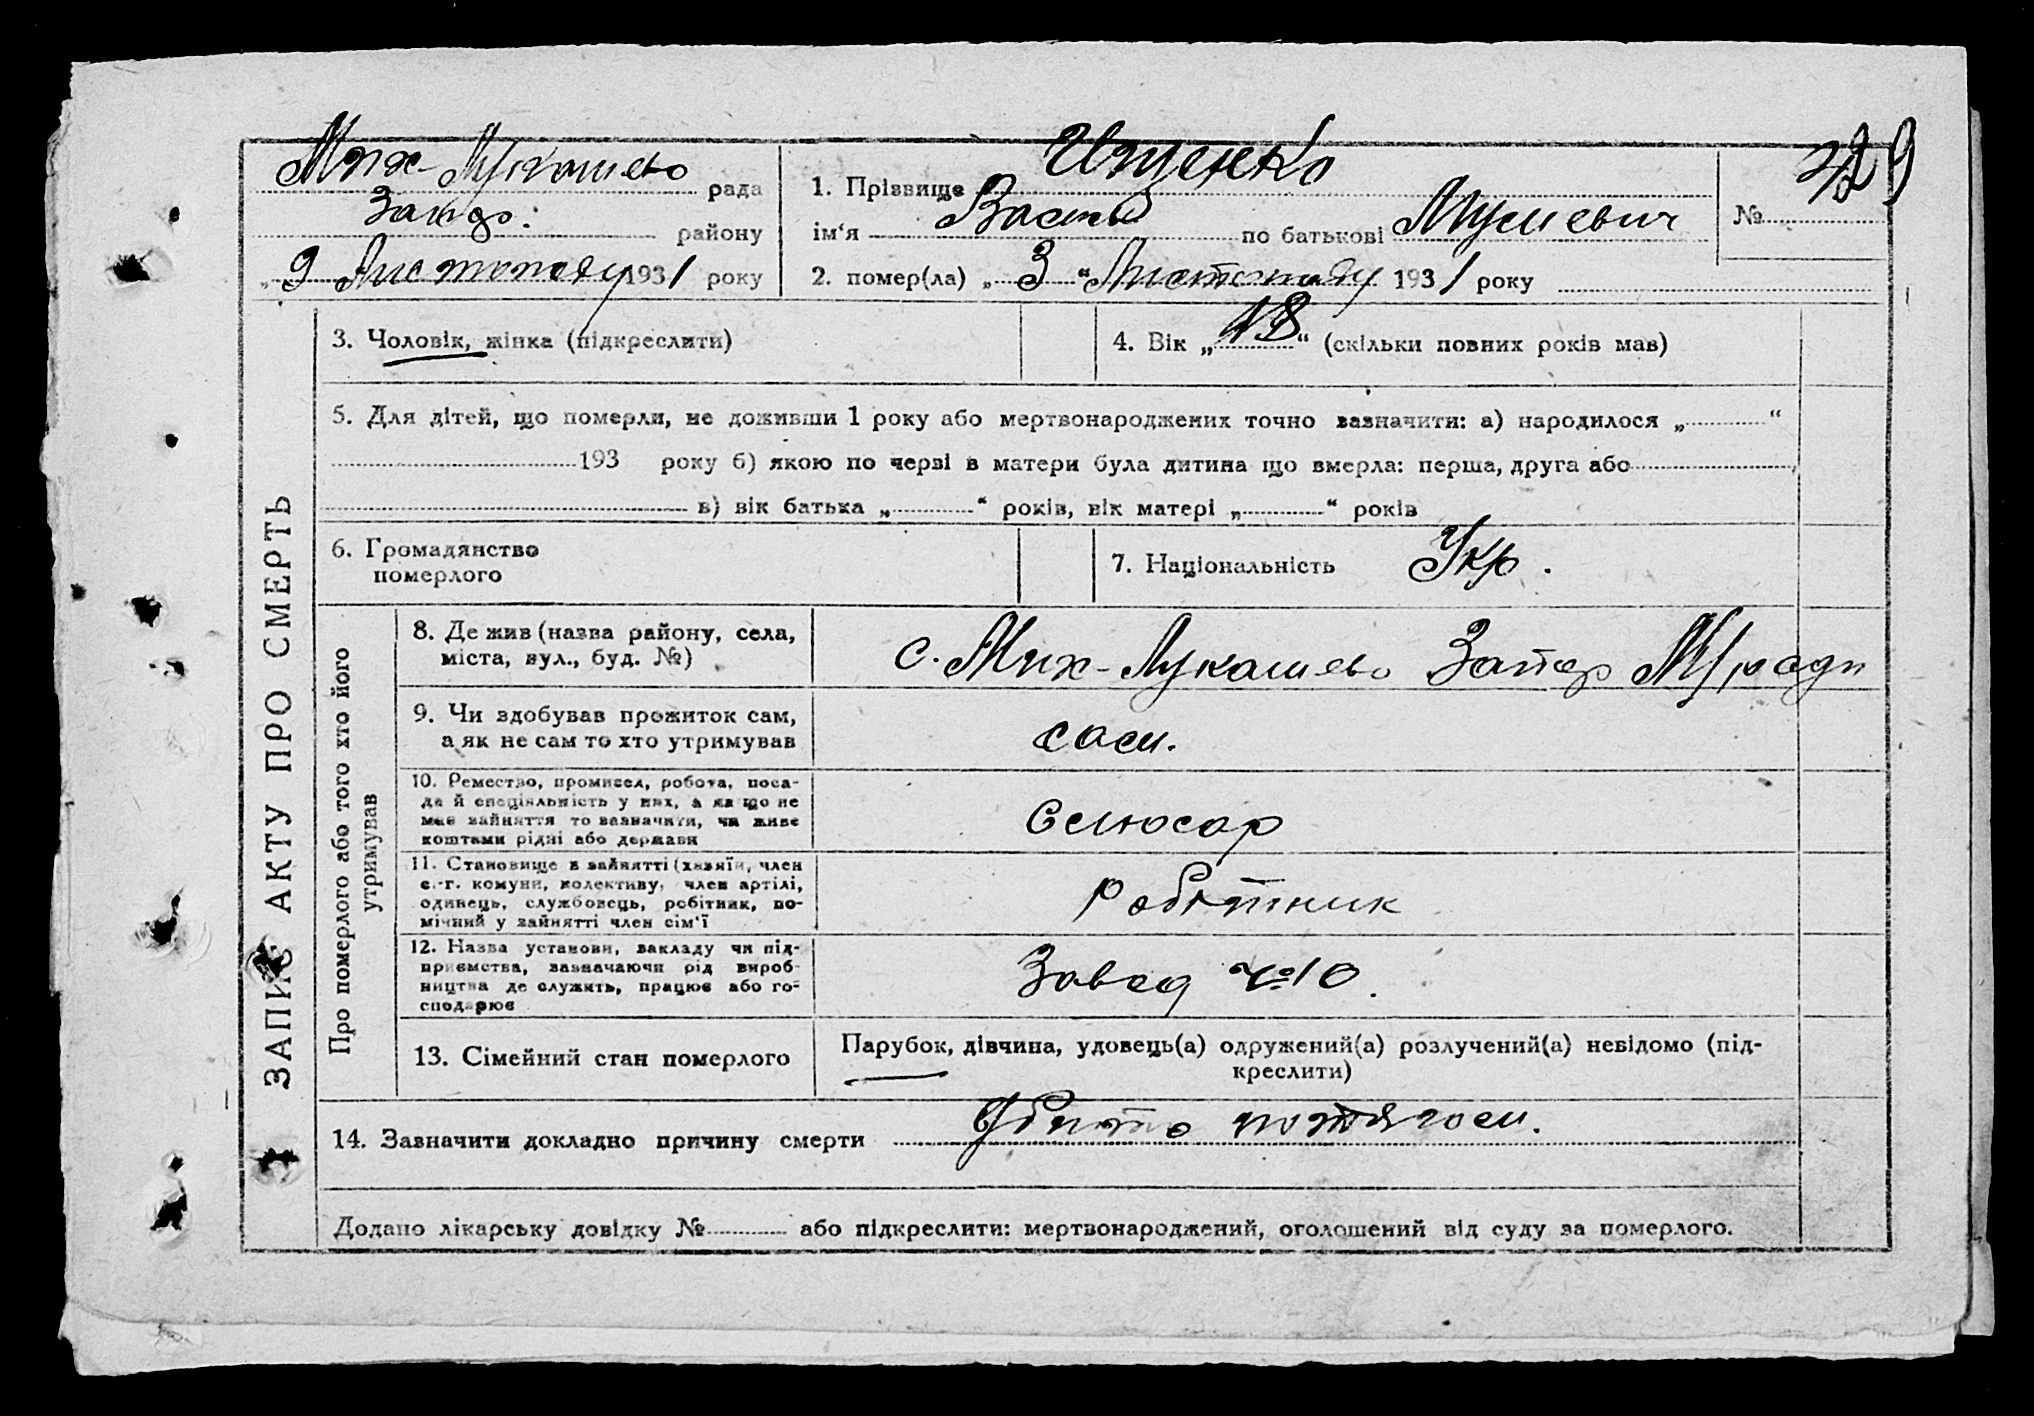 Мих-Лукашево рада
Запор. району
„9 Листопаду 1931 року
1. Прізвище Ищенко
ім'я Василь по батькові Мусиевич
2. помер(ла) „3“ Листопаду 1931 року
№
3. Чоловік, жінка (підкреслити)
4. Вік „18“ (скільки повних років мав)
5. Для дітей, що померли, не доживши 1 року або мертвонароджених точно зазначити: а) народилося „ “
193 року б) якою по черві в матери була дитина що вмерла: перша, друга або
в) вік батька „ “ років, вік матері „ “ років
6. Громадянство
померлого
7. Національність Укр.
ЗАПИС АКТУ ПРО СМЕРТЬ
Про померлого або того хто його
утримував
8. Де жив (назва району, села,
міста, вул., буд. №)
с. Мих-Лукашево Запор М/ради
9. Чи здобував прожиток сам,
а як не сам то хто утримував
сам.
10. Ремество, промисел, робота, поса-
да й спеціяльність у них, а якщо не
мав зайняття то зазначити, чи живе
коштами рідні або держави
Слюсар
11. Становище в зайнятті (хазяїн, член
с.-г. комуни, колективу, член артілі,
одинець, службовець, робітник, по-
мічний у зайнятті член сім'ї
Робітник
12. Назва установи, закладу чи під-
приємства, зазначаючи рід вироб-
ництва де служить, працює або го-
сподарює
Завод №10.
13. Сімейний стан померлого
Парубок, дівчина, удовець(а) одружений(а) розлучений(а) невідомо (під-
креслити)
14. Зазначити докладно причину смерти Убито потягом.
Додано лікарську довідку № або підкреслити: мертвонароджений, оголошений від суду за померлого.